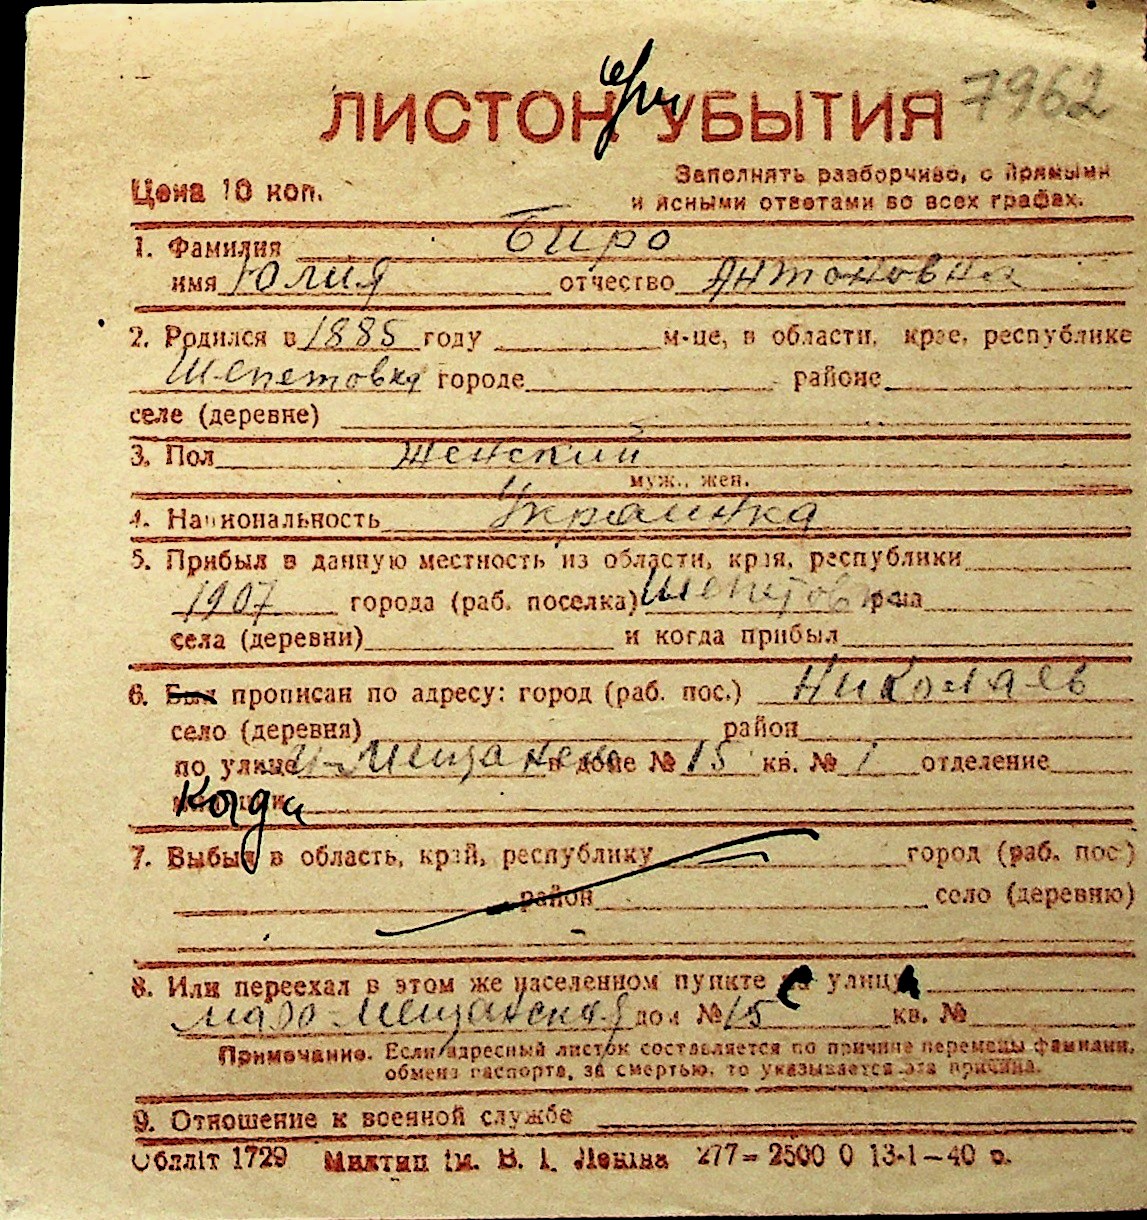 ЛИСТОК при УБЫТИЯ 7962
Цена 10 коп.
Заполнять разборчиво, с прямыми
и ясными ответами во всех графах.
1. Фамилия Биро
имя Юлия отчество Антоновна
2. Родился в 1885 году м-це, в области, крае, республике
Шепетовка городе районе
селе (деревне)
3. Пол женский
муж., жен.
4. Национальность Украинка
5. Прибыл в данную местность из области, края, республики
1907 города (раб. поселка) Шепетовка
села (деревни) и когда прибыл
6. Был прописан по адресу: город (раб. пос.) Николаев
село (деревня) район
по улице доме № 15 кв. № 1 отделение
Когда
7. Выбыл в область, край, республику город (раб. пос.)
район село (деревню)
8. Или переехал в этом же населенном пункте с улицы
мало-Мещанская дом № 15 кв. №
Примечание. Если адресный листок составляется по причине перемены фамилии,
обмена паспорта, за смертью, то указывается эта причина.
9. Отношение к военной службе
Обллiт 1729 Милтип iм. В. I. Ленiна 277 – 2500 0 13-1-40 р.